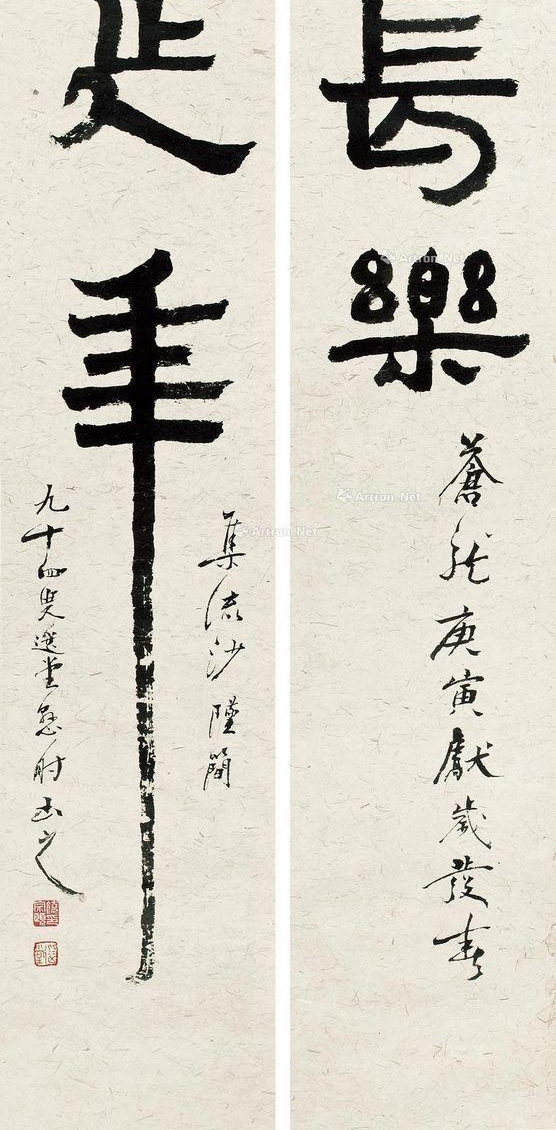 長樂
蒼龍庚寅獻歲發春
延年
集流沙墜簡
九十四叟選堂懸肘書之
Artron.Net
Artron.Net
Artron.Net